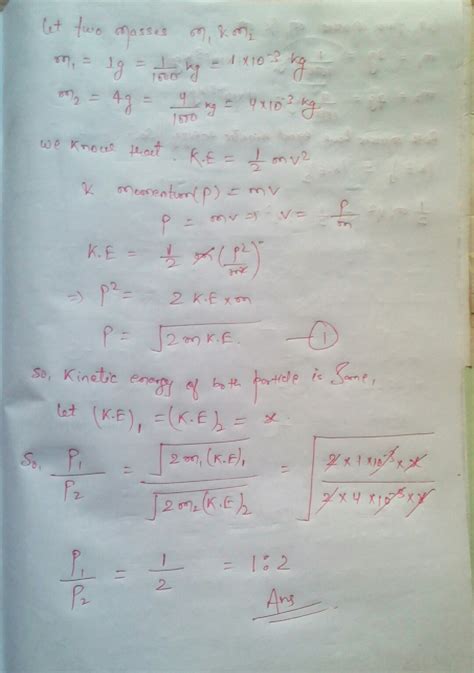 Let two masses m₁ & m₂
m₁ = 1g = 1/1000 kg = 1×10⁻³ kg
m₂ = 4g = 4/1000 kg = 4×10⁻³ kg
we know that K.E = 1/2 mv²
& momentum(P) = mv
P = mv ⇒ v = P/m
K.E = 1/2 m(P²/m²)
⇒ P² = 2 K.E × m
P = √2mK.E. —①
So, Kinetic energy of both particle is Same,
Let (K.E)₁ = (K.E)₂ = x
So, P₁/P₂ = √2m₁(K.E)₁/√2m₂(K.E)₂ = √2×1×10⁻³×x/2×4×10⁻³×x
P₁/P₂ = 1/2 = 1:2
Ans